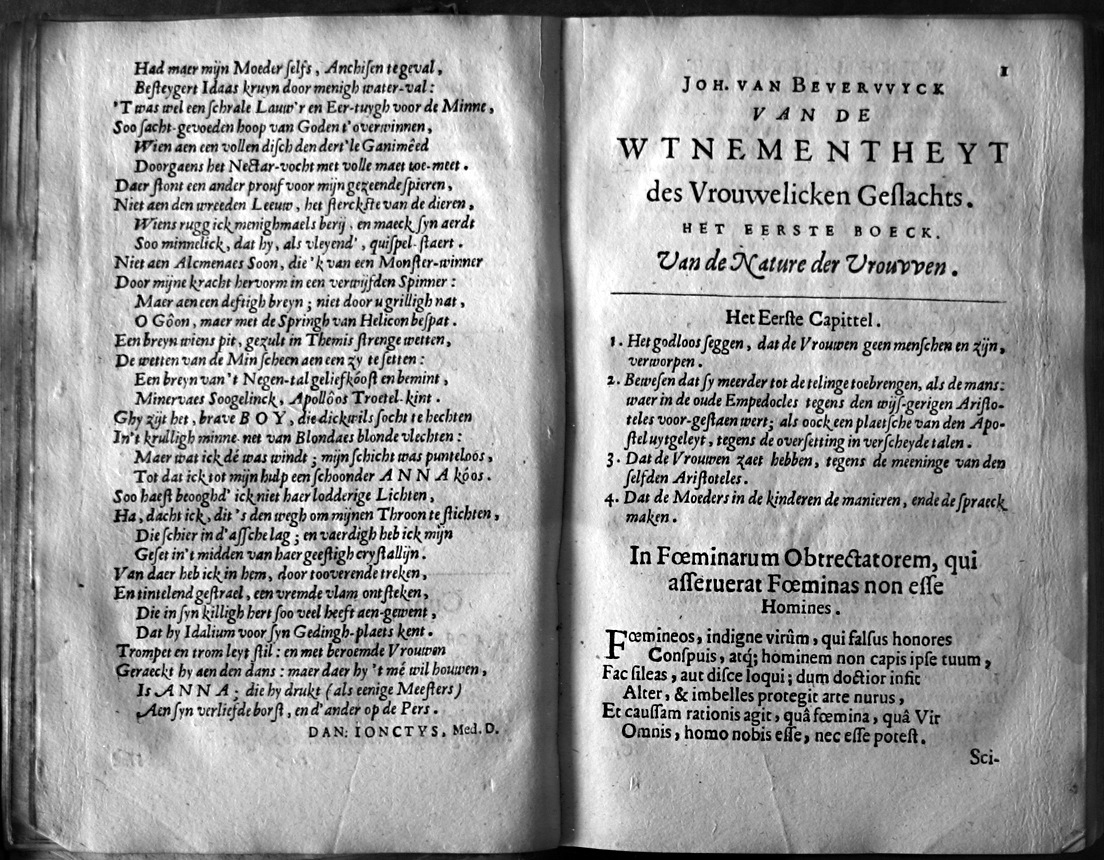 Had maer mijn Moeder ſelfs, Anchiſen te geval,
Beſteygert Idaas kruyn door menigh water-val:
'T was wel een ſchrale Lauw'r en Eer-tuygh voor de Minne,
Soo ſacht-gevoeden hoop van Goden t'overwinnen,
Wien aen een vollen diſch den dert'le Ganimêed
Doorgaens het Nectar-vocht met volle maet toe-meet.
Daer ſtont een ander prouf voor mijn gezeende ſpieren,
Niet aen den wreeden Leeuw, het ſterckſte van de dieren,
Wiens rugg ick menighmaels berij, en maeck ſyn aerdt
Soo minnelick, dat hy, als vleyend', quiſpel-ſtaert.
Niet aen Alcmenaes Soon, die 'k van een Monſter-winner
Door mijne kracht hervorm in een verwijfden Spinner:
Maer aen een deftigh breyn; niet door u grilligh nat,
O Gôon, maer met de Springh van Helicon beſpat.
Een breyn wiens pit, gezult in Themis ſtrenge wetten,
De wetten van de Min ſcheen aen een zy te ſetten:
Een breyn van't Negen-tal geliefkóoſt en bemint,
Minervaes Soogelinck, Apollôos Troetel-kint.
Ghy zijt het, brave BOY, die dickwils ſocht te hechten
In't krulligh minne-net van Blondaes blonde vlechten:
Maer wat ick dé was windt; mijn ſchicht was punteloós,
Tot dat ick tot mijn hulp een ſchoonder ANNA kóos.
Soo haeſt beooghd' ick niet haer lodderige Lichten,
Ha, dacht ick, dit 's den wegh om mijnen Throon te ſtichten,
Die ſchier in d'aſſche lag; en vaerdigh heb ick mijn
Geſet in't midden van haer geeſtigh cryſtallijn.
Van daer heb ick in hem, door tooverende treken,
En tintelend geſtrael, een vremde vlam ontſteken,
Die in ſyn killigh hert ſoo veel heeft aen-gewent,
Dat hy Idalium voor ſyn Gedingh-plaets kent.
Trompet en trom leyt ſtil: en met beroemde Vrouwin
Geraeckt hy aen den dans: maer daer hy 't mé wil houwen,
Is ANNA; die hy drukt (als eenige Meeſters)
Aen ſyn verliefde borſt, en d'ander op de Pers.
DAN: IONCTYS, Med. D.
1
JOH. VAN BEVERVVYCK
VAN DE
WTNEMENTHEYT
des Vrouwelicken Geſlachts.
HET EERSTE BOECK.
Van de Nature der Vrouvven.
Het Eerſte Capittel.
1. Het godloos ſeggen, dat de Vrouwen geen menſchen en zijn,
verworpen.
2. Beweſen dat ſy meerder tot de telinge toebrengen, als de mans:
waer in de oude Empedocles tegens den wijſ-gerigen Ariſto-
teles voor-geſtaen wert; als oock een plaetſche van den Apo-
ſtel uytgeleyt, tegens de overſetting in verſcheyde talen.
3. Dat de Vrouwen zaet hebben, tegens de meeninge van den
ſelfden Ariſtoteles.
4. Dat de Moeders in de kinderen de manieren, ende de ſpraeck
maken.
In Fœminarum Obtrectatorem, qui
aſſeruerat Fœminas non eſſe
Homines.
Fœmineos, indigne virûm, qui falſus honores
Conſpuis, atq; hominem non capis ipſe tuum,
Fac ſileas, aut diſce loqui; dum doctior infit
Alter, & imbelles protegit arte nurus,
Et cauſſam rationis agit, quâ fœmina, quâ Vir
Omnis, homo nobis eſſe, nec eſſe poteſt.
Sci-